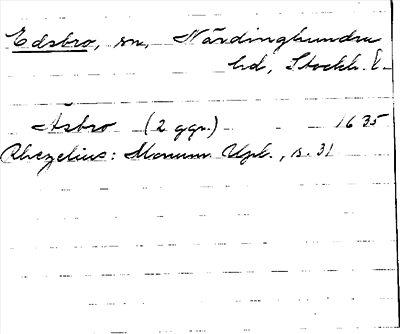 Edsbro, sn, Närdinghundra
hd, Stockh. l.
Åsbro (2 ggr.) 1635
Rhezelius: Monum. Upl., s. 31